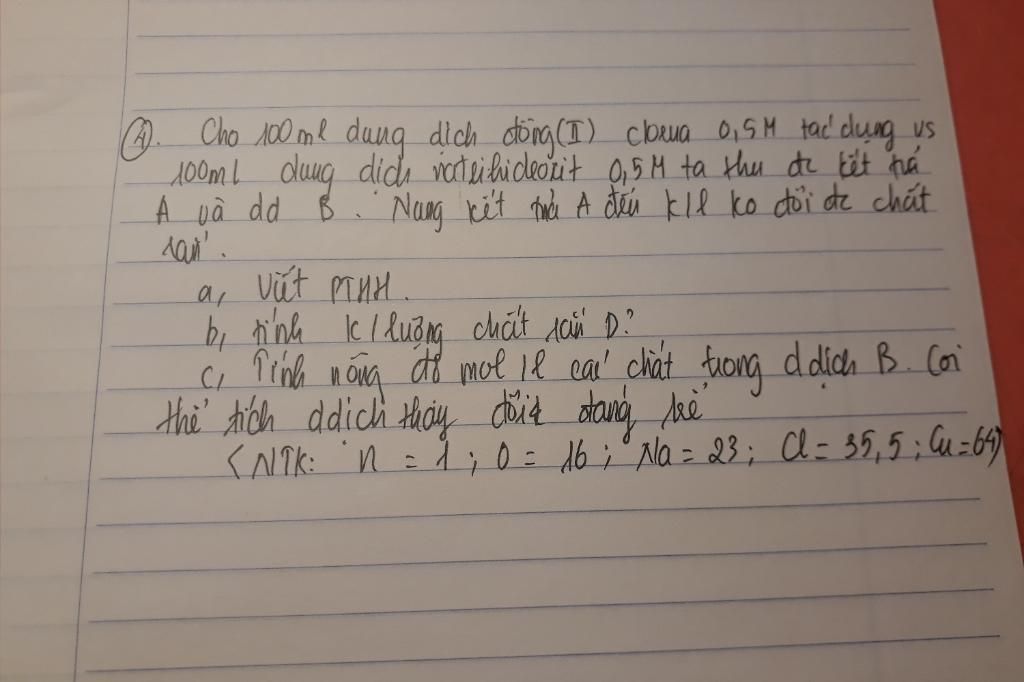 ④. Cho 100ml dung dịch đồng(II) clorua 0,5M tác dụng vs
100ml dung dịch natrihiđroxit 0,5M ta thu đc kết tủa
A và dd B. Nung kết tủa A đến k/l ko đổi đc chất
rắn.
a, Viết PTHH.
b, tính k/lượng chất rắn D?
c, Tính nồng độ mol /l các chất trong d dịch B. Coi
thể tích ddịch thay đổi đáng kể
(NTK: H = 1; O = 16; Na = 23; Cl = 35,5; Cu = 64)